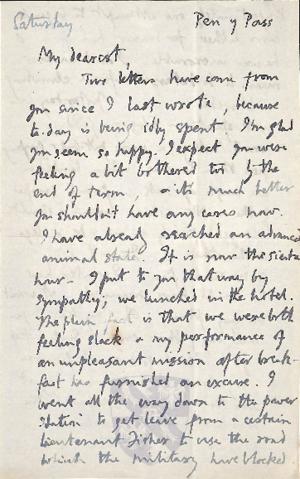 Saturday
Pen y Pass
My dearest,
Two letters have come from
you since I last wrote, because
to-day is being idly spent. I'm glad
you seem so happy. I expect you were
feeling a bit bothered too by the
end of term, & it's much better
you shouldn't have any cares now.
I have already reached an advanced
animal state. It is now the siesta
hour - I put to you that way by
sympathy; we lunched in the hotel.
The plain fact is that we were both
feeling slack & my performance of
an unpleasant mission after break-
fast has furnished an excuse. I
went all the way down to the power
station to get leave from a certain
Lieutenant Fisher to use the road
which the military have blocked